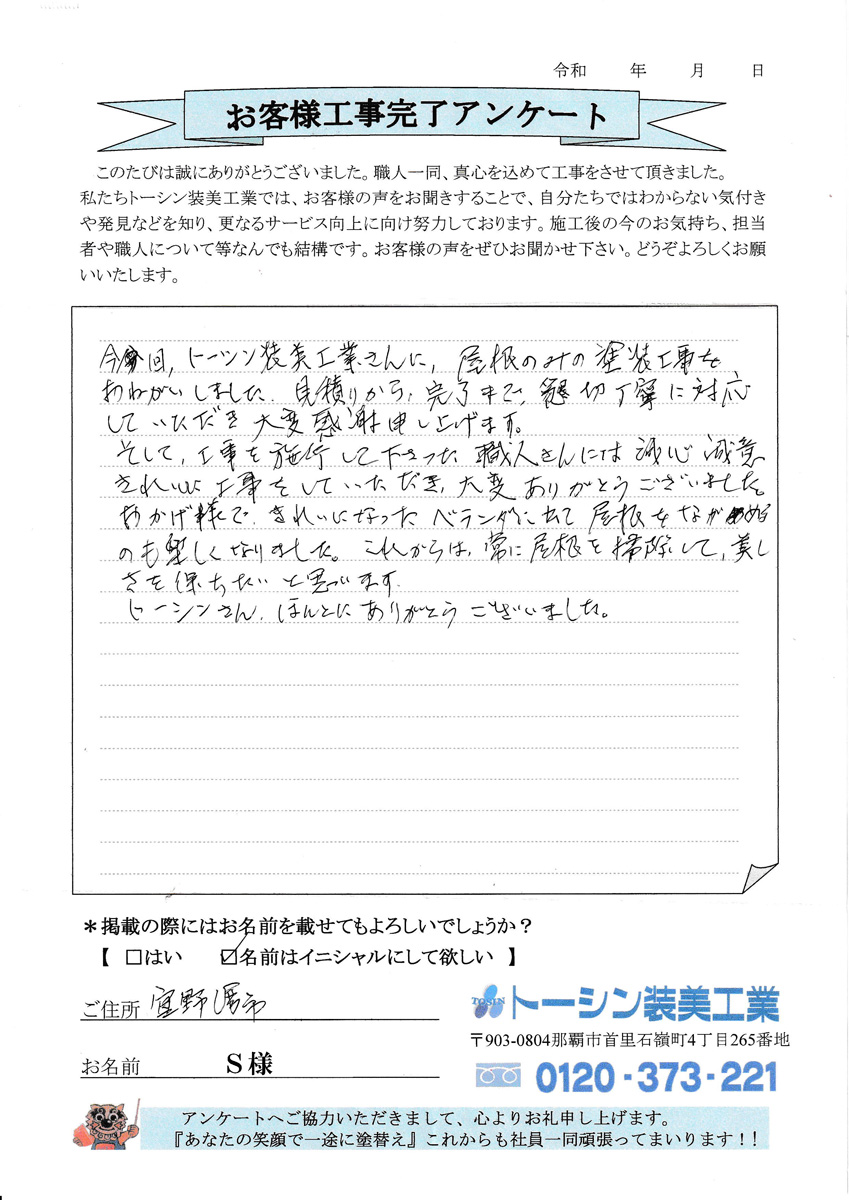 令和　年　月　日
お客様工事完了アンケート
このたびは誠にありがとうございました。職人一同、真心を込めて工事をさせて頂きました。
私たちトーシン装美工業では、お客様の声をお聞きすることで、自分たちではわからない気付き
や発見などを知り、更なるサービス向上に向け努力しております。施工後の今のお気持ち、担当
者や職人について等なんでも結構です。お客様の声をぜひお聞かせ下さい。どうぞよろしくお願
いいたします。
今回、トーシン装美工業さんに、屋根のみの塗装工事を
おねがいしました。見積りから、完了まで、懇切丁寧に対応
していただき大変感謝申し上げます。
そして、工事を施行して下さった職人さんには誠心誠意
きれいに工事をしていただき、大変ありがとうございました。
おかげ様で、きれいになったベランダに出て屋根をながめる
のも楽しくなりました。これからは、常に屋根を掃除して、美し
さを保ちたいと思います。
トーシンさん、ほんとにありがとうございました。
＊掲載の際にはお名前を載せてもよろしいでしょうか？
【 □はい　☑名前はイニシャルにして欲しい 】
ご住所 宜野湾市
TOSIN トーシン装美工業
〒903-0804那覇市首里石嶺町4丁目265番地
お名前 S様
0120-373-221
アンケートへご協力いただきまして、心よりお礼申し上げます。
『あなたの笑顔で一途に塗替え』これからも社員一同頑張ってまいります！！